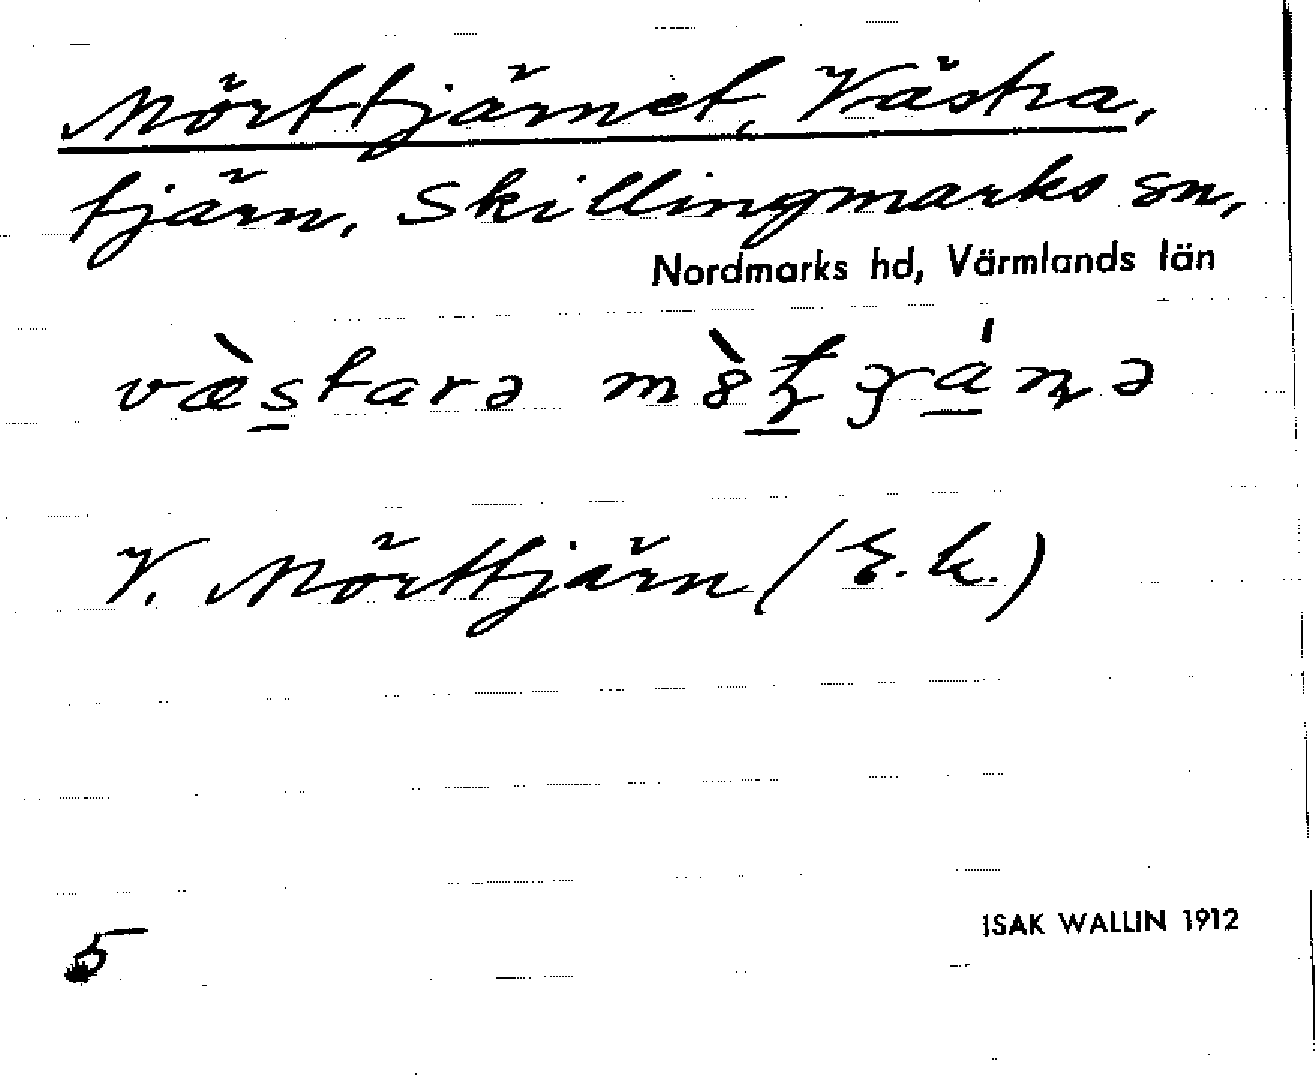 Mörttjärnet, Västra,
tjärn, Skillingmarks sn,
Nordmarks hd, Värmlands län
væ̀starə
V. Mörttjärn (E.k.)
5
ISAK WALLIN 1912